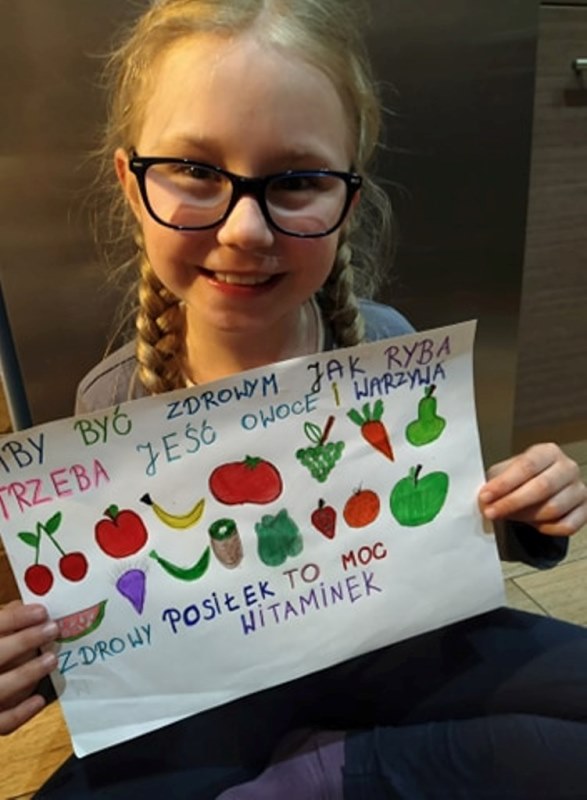 ABY BYĆ ZDROWYM JAK RYBA
TRZEBA JEŚĆ OWOCE I WARZYWA
ZDROWY POSIŁEK TO MOC
WITAMINEK